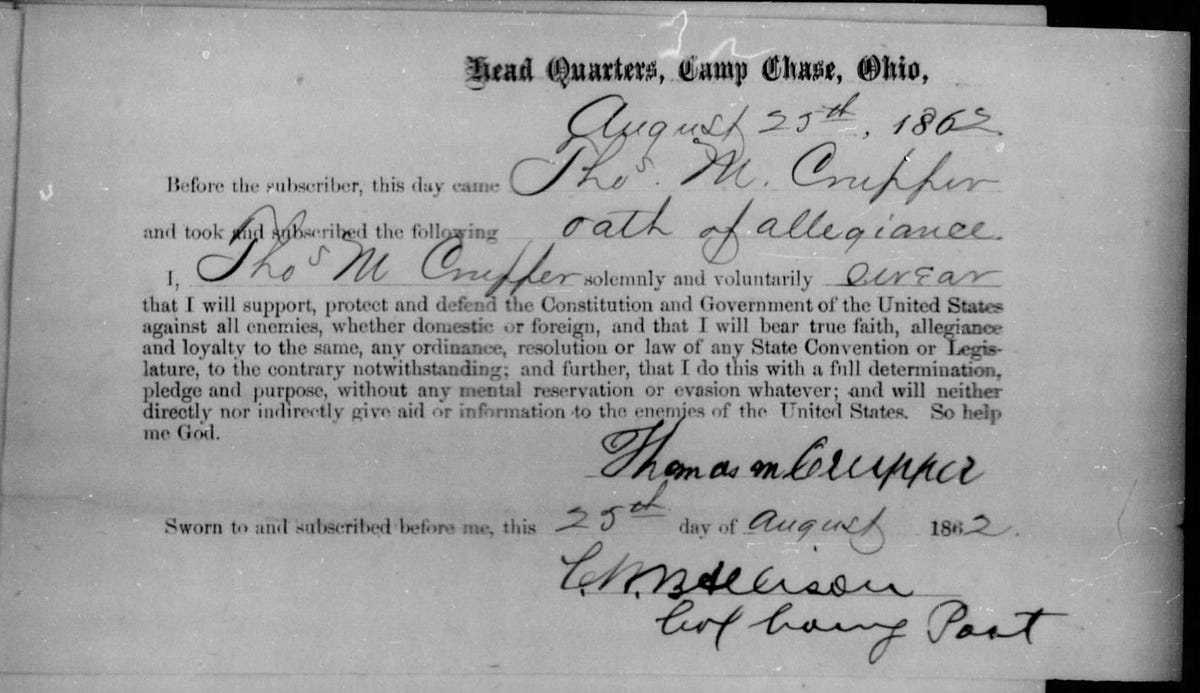 Head Quarters, Camp Chase, Ohio,
August 25th, 1862.
Before the subscriber, this day came Thos. M. Crupper
and took and subscribed the following oath of allegiance.
I, Thos M Crupper solemnly and voluntarily swear
that I will support, protect and defend the Constitution and Government of the United States
against all enemies, whether domestic or foreign, and that I will bear true faith, allegiance
and loyalty to the same, any ordinance, resolution or law of any State Convention or Legis-
lature, to the contrary notwithstanding; and further, that I do this with a full determination,
pledge and purpose, without any mental reservation or evasion whatever; and will neither
directly nor indirectly give aid or information to the enemies of the United States. So help
me God.
Thomas M Crupper
Sworn to and subscribed before me, this 25th day of August 1862.
C. W. B. Allison
Col Comg Post